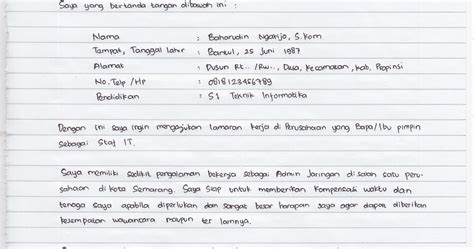 Saya yang bertanda tangan dibawah ini :
Nama : Baharudin Ngarijo, S.Kom
Tempat, Tanggal lahir : Bantul, 25 Juni 1987
Alamat : Dusun Rt.. /Rw.., Desa, Kecamatan, Kab, Propinsi
No. Telp / HP : 0818123456789
Pendidikan : S1 Teknik Informatika
Dengan ini saya ingin mengajukan lamaran kerja di Perusahaan yang Bapa/Ibu pimpin
sebagai Staf IT.
Saya memiliki sedikit pengalaman bekerja sebagai Admin Jaringan di salah satu peru-
sahaan di kota Semarang. Saya siap untuk memberikan kompensasi waktu dan
tenaga saya apabila diperlukan dan sangat besar harapan saya agar dapat diberikan
kesempatan wawancara maupun tes lainnya.